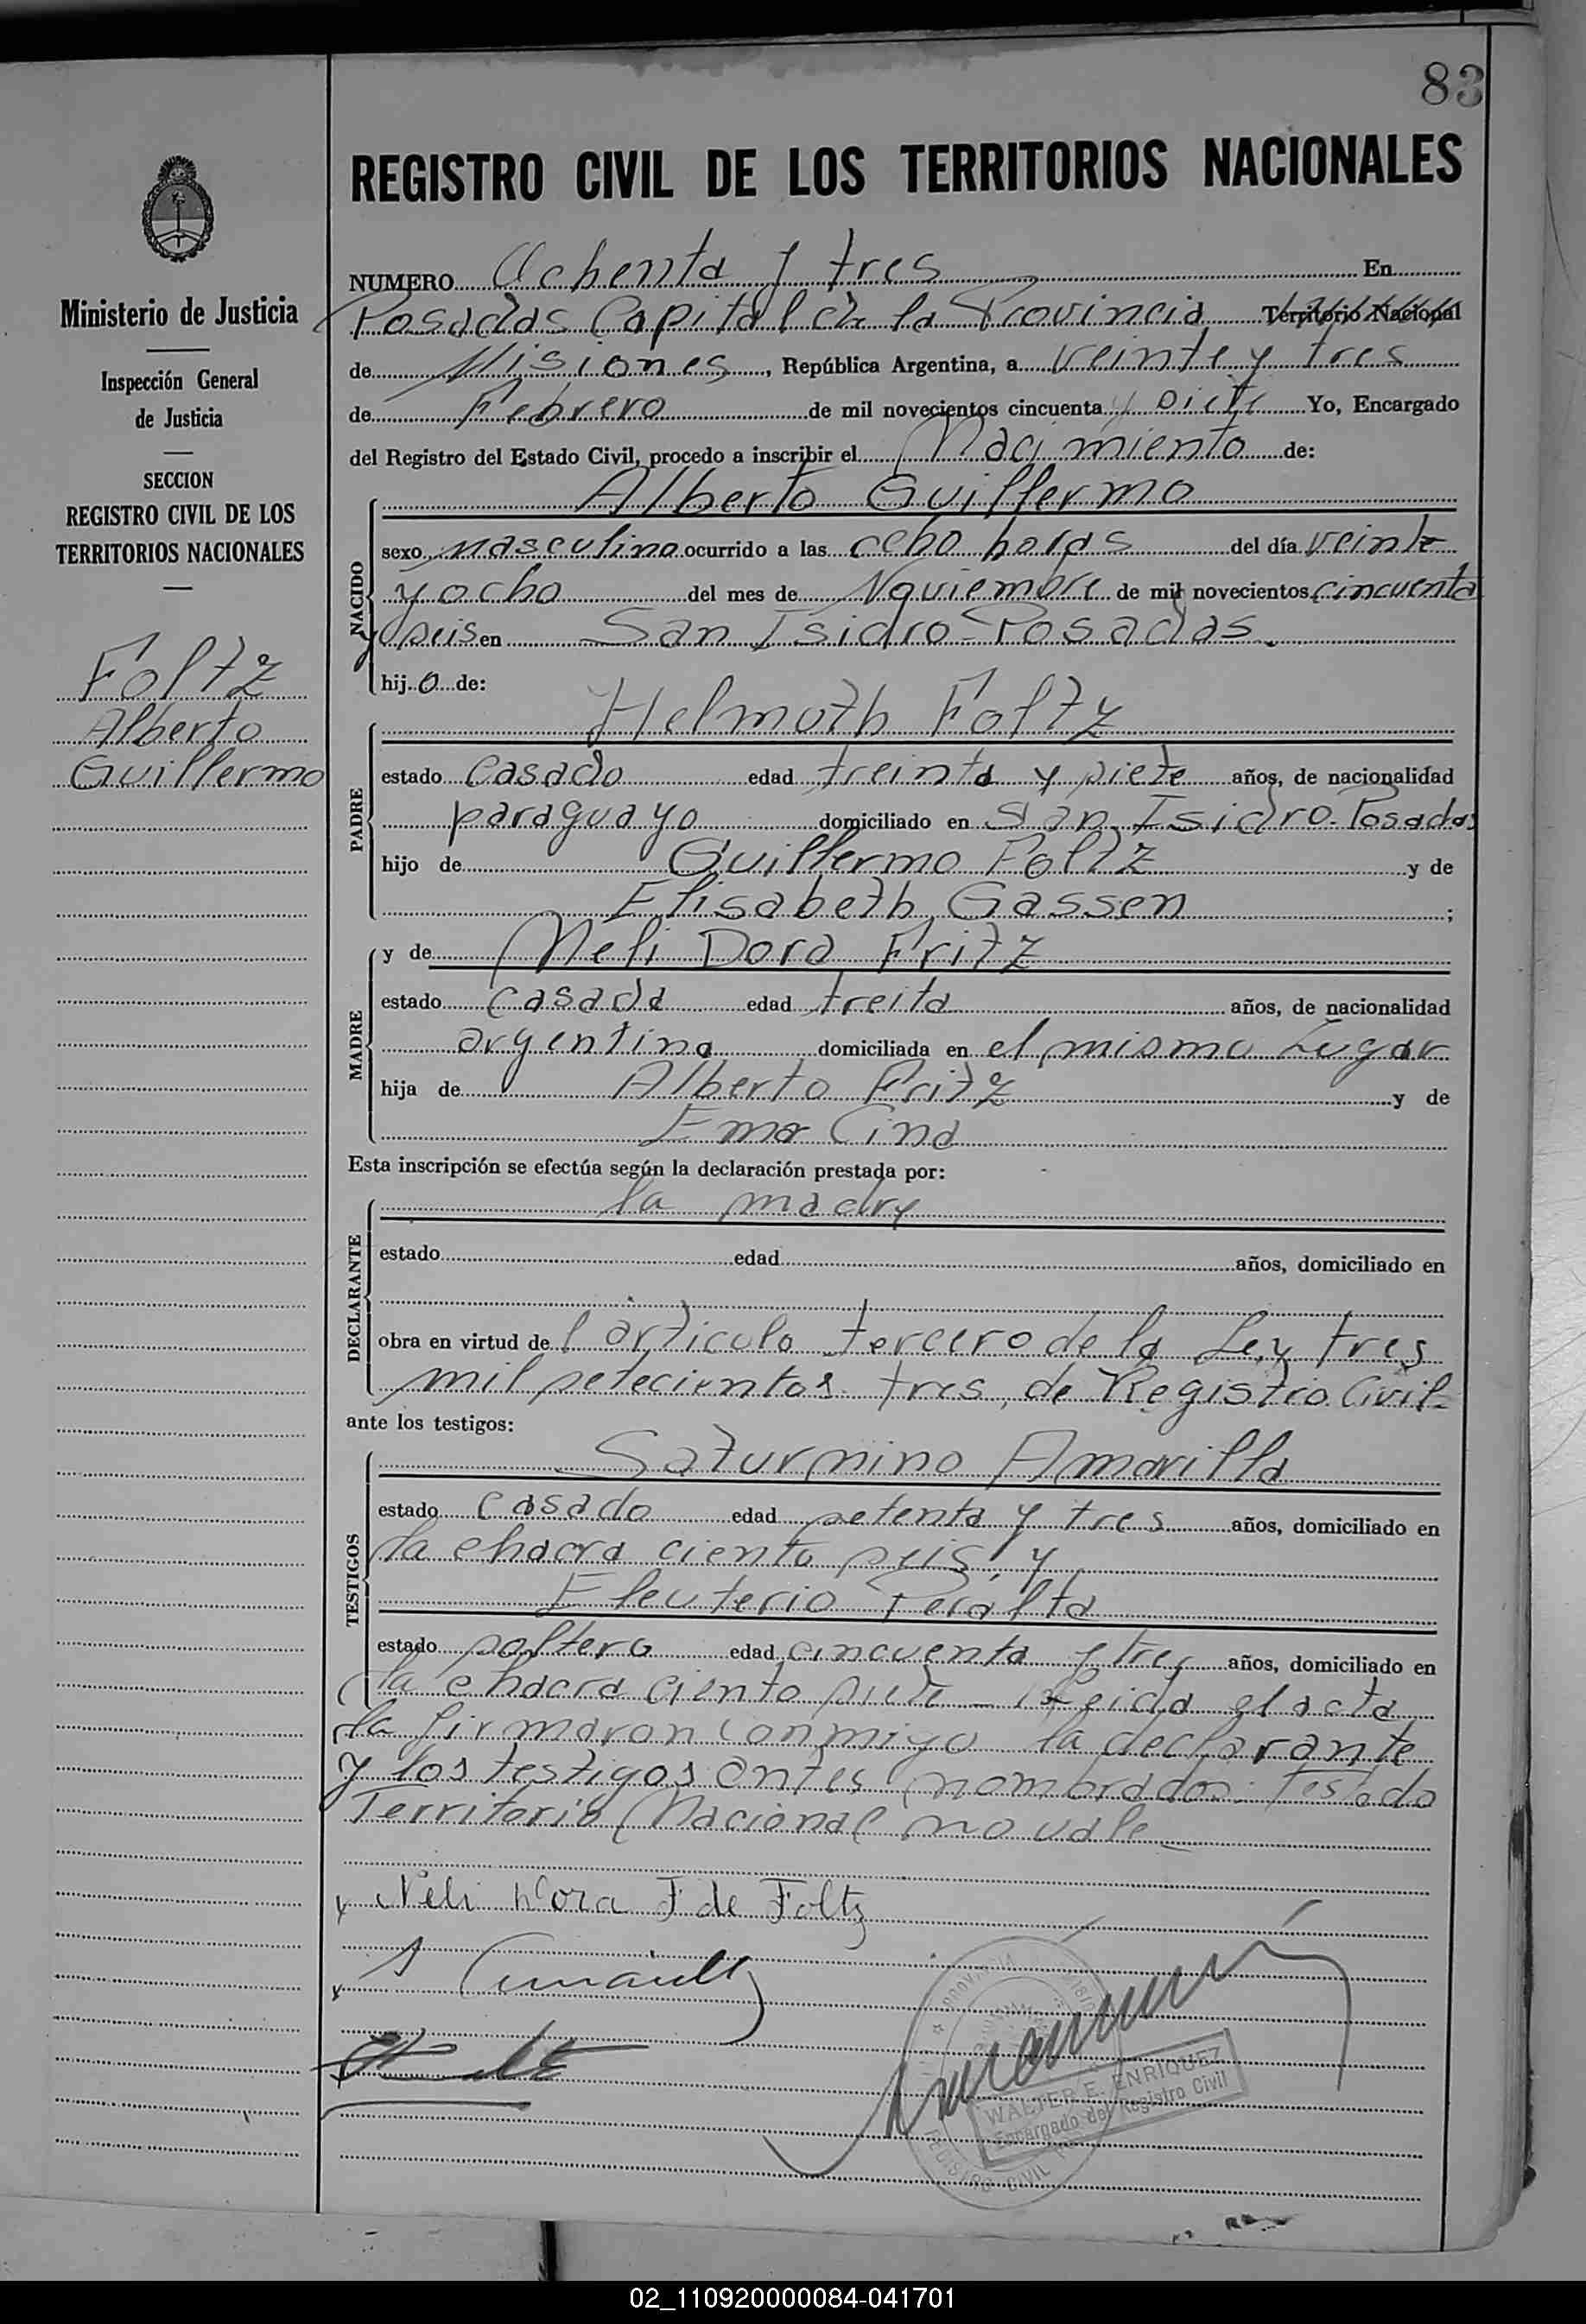 83
REGISTRO CIVIL DE LOS TERRITORIOS NACIONALES
Ministerio de Justicia
Inspección General
de Justicia
SECCION
REGISTRO CIVIL DE LOS
TERRITORIOS NACIONALES
Foltz
Alberto
Guillermo
NUMERO Ochenta y tres En
Posadas Capital de la Provincia Territorio Nacional
de Misiones, República Argentina, a veinte y tres
de Febrero de mil novecientos cincuenta y siete Yo, Encargado
del Registro del Estado Civil, procedo a inscribir el Nacimiento de:
NACIDO
Alberto Guillermo
sexo masculino ocurrido a las ocho horas del día veinte
y ocho del mes de Noviembre de mil novecientos cincuenta
y seis en San Isidro-Posadas.
hijo de:
PADRE
Helmuth Foltz
estado casado edad treinta y siete años, de nacionalidad
paraguayo domiciliado en San Isidro-Posadas
hijo de Guillermo Foltz y de
Elisabeth Gassen ;
MADRE
y de Neli Dora Fritz
estado casada edad treita años, de nacionalidad
argentina domiciliada en el mismo Lugar
hija de Alberto Fritz y de
Ema Cina
Esta inscripción se efectúa según la declaración prestada por:
DECLARANTE
la madre
estado edad años, domiciliado en
obra en virtud del articulo tercero de la Ley tres
mil setecientos tres, de Registro Civil-
ante los testigos:
TESTIGOS
Saturnino Amarilla
estado casado edad setenta y tres años, domiciliado en
la chacra ciento seis, y
Eleuterio Peralta
estado soltero edad cincuenta y tres años, domiciliado en
la chacra ciento siete - Leida el acta
la firmaron conmigo la declarante
y los testigos antes nombrados: Testado
Territorio Nacional no vale
x Neli Dora F de Foltz
x S Amarilla
WALTER E. ENRIQUEZ
Encargado del Registro Civil
REGISTRO CIVIL
PROVINCIA
02_110920000084-041701